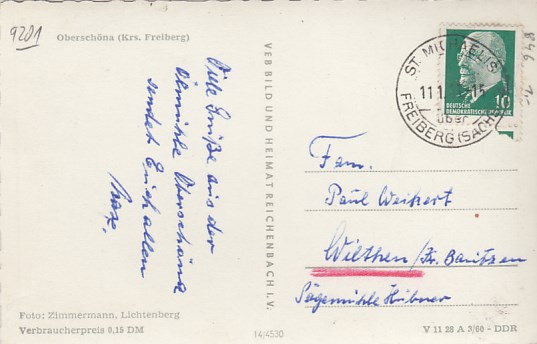 9201
Oberschöna (Krs. Freiberg)
Viele Grüße aus der
Ölmühle Oberschöna
sendet Euch allen
VEB BILD UND HEIMAT REICHENBACH I. V.
ST. MICHAELIS
11.1
15
über
FREIBERG (SACHS
10
DEUTSCHE
DEMOKRATISCHE REPUBLIK
Fam.
Paul Weikert
Wilthen / Kr. Bautzen
Sägemühle Hübner
Foto: Zimmermann, Lichtenberg
Verbraucherpreis 0,15 DM
14/4530
V 11 28 A 3/60 - DDR